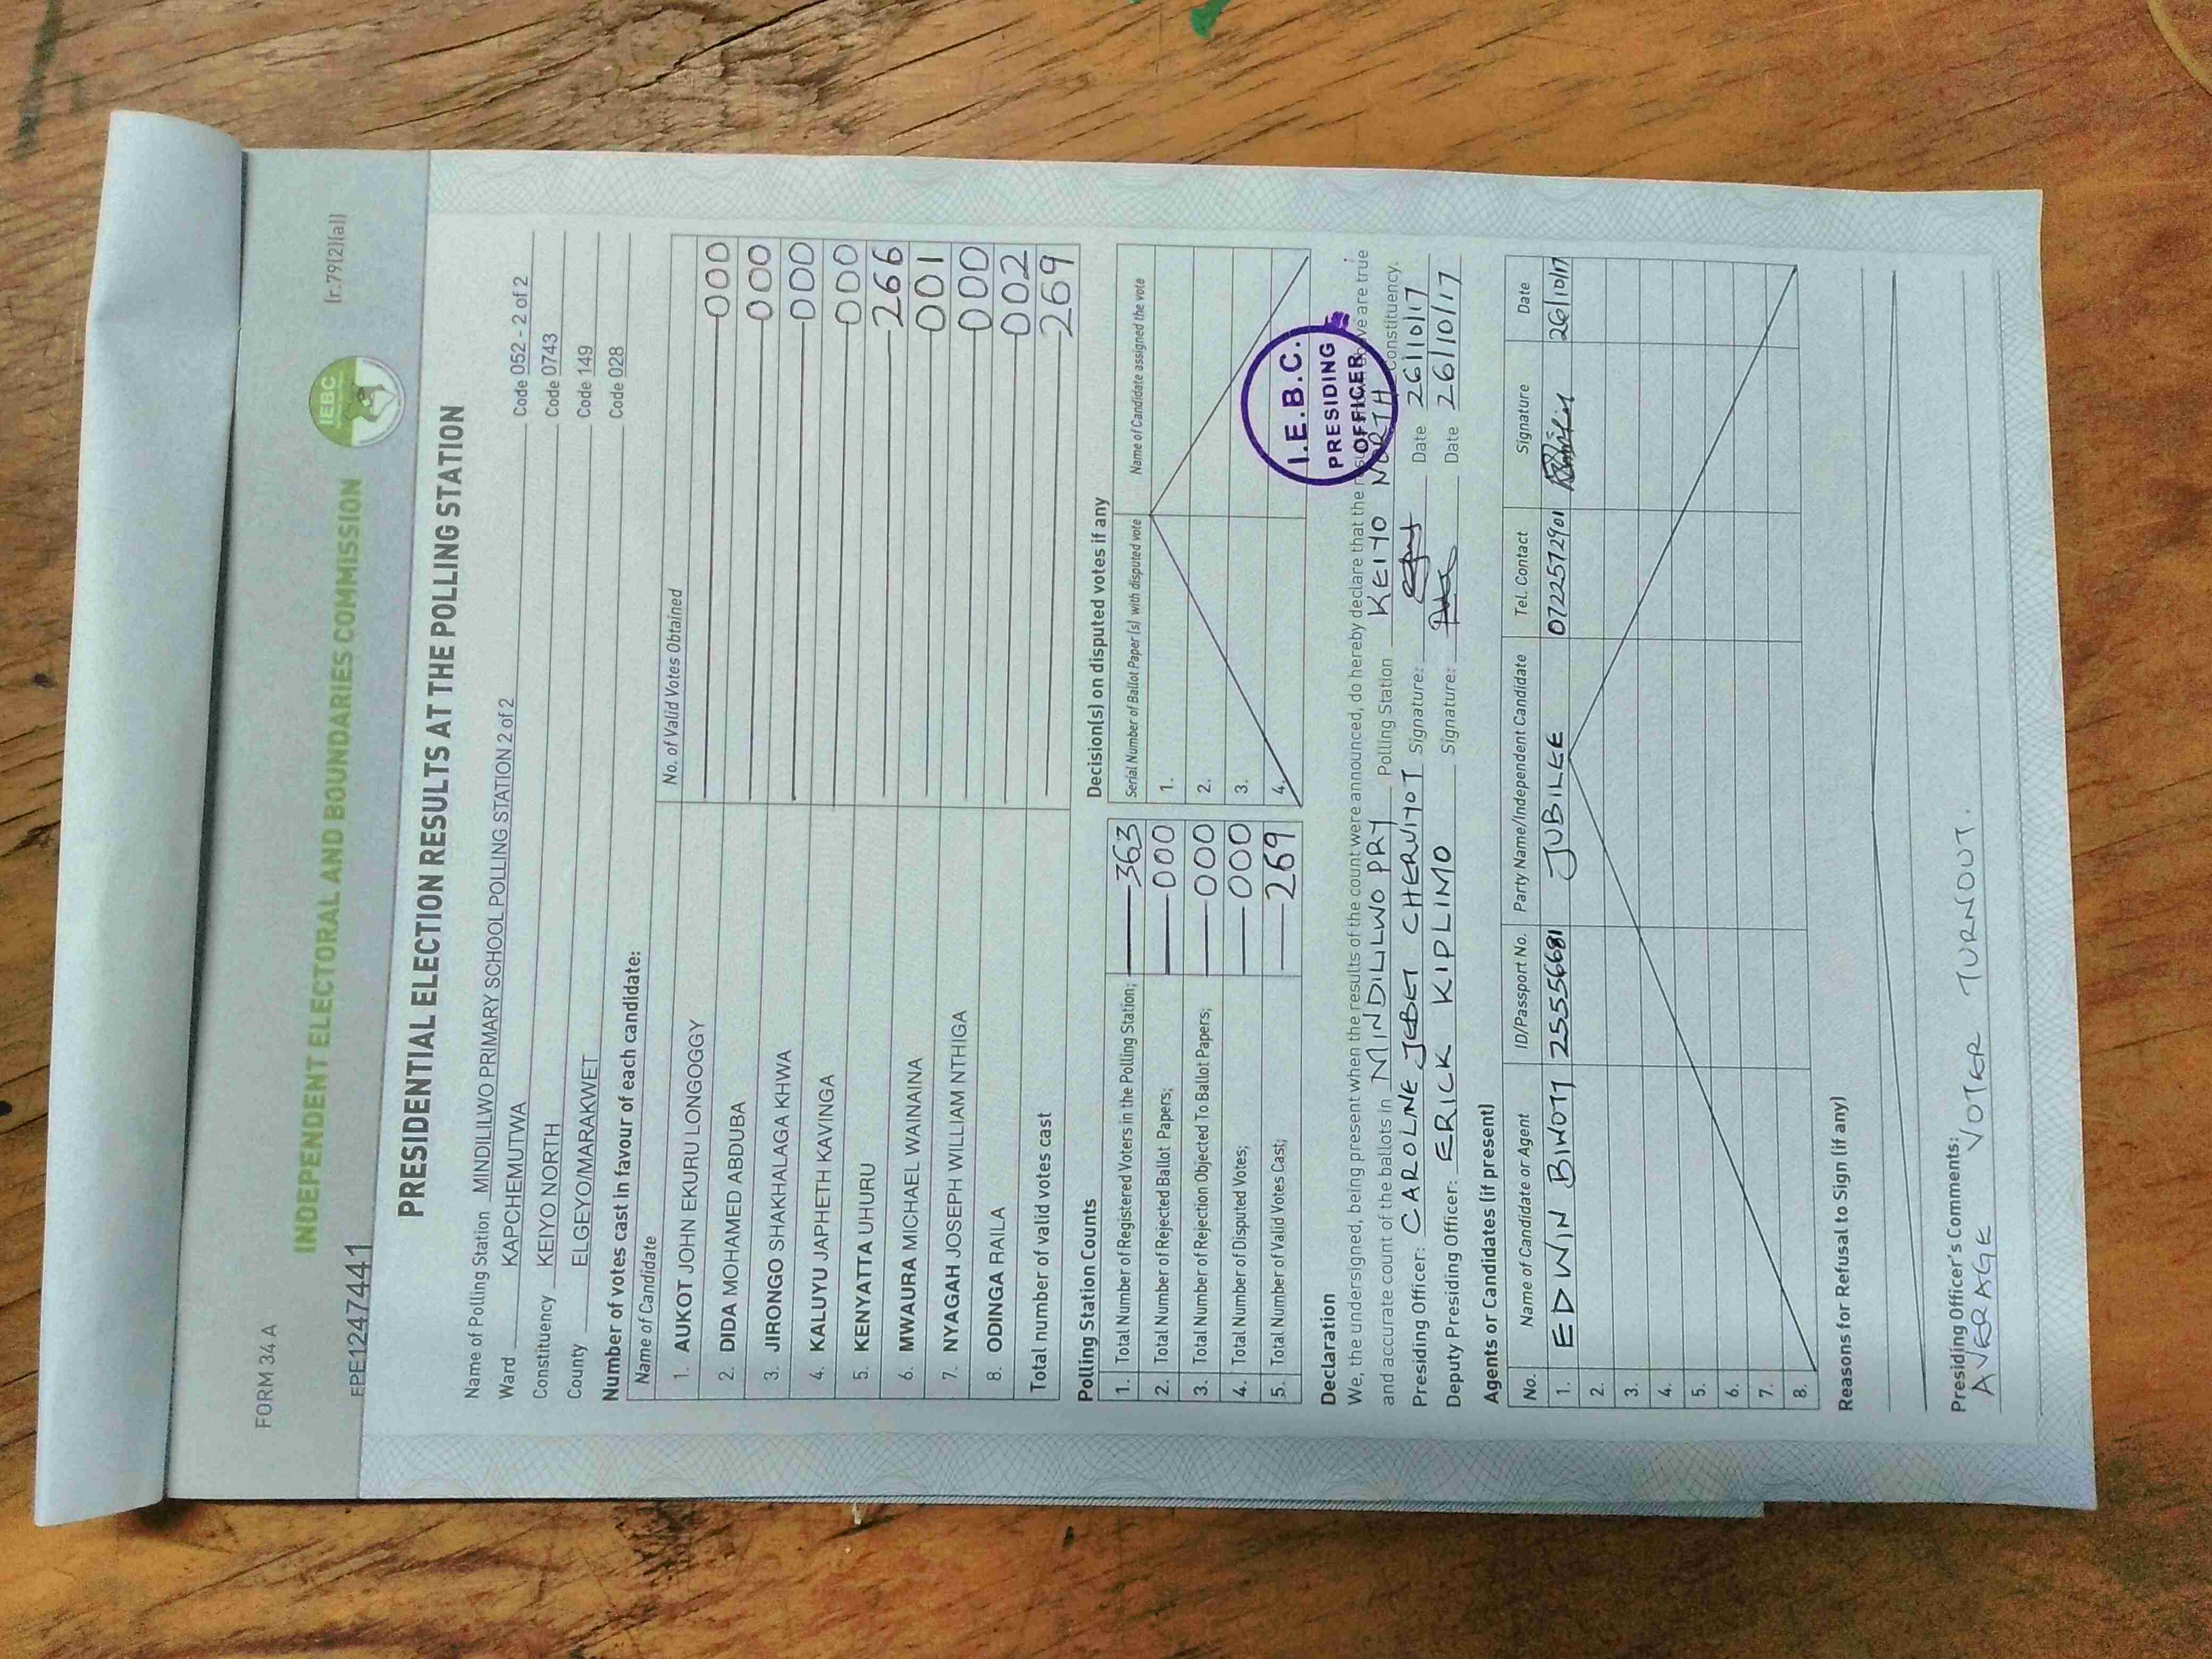 FORM 34 A
(r.79(2)(a))
INDEPENDENT ELECTORAL AND BOUNDARIES COMMISSION
IEBC
EPE1247441
PRESIDENTIAL ELECTION RESULTS AT THE POLLING STATION
Name of Polling Station MINDILILWO PRIMARY SCHOOL POLLING STATION 2 of 2 Code 052 - 2 of 2
Ward KAPCHEMUTWA Code 0743
Constituency KEIYO NORTH Code 149
County ELGEYO/MARAKWET Code 028
Number of votes cast in favour of each candidate:
Name of Candidate No. of Valid Votes Obtained
1. AUKOT JOHN EKURU LONGOGGY 000
2. DIDA MOHAMED ABDUBA 000
3. JIRONGO SHAKHALAGA KHWA 000
4. KALUYU JAPHETH KAVINGA 000
5. KENYATTA UHURU 266
6. MWAURA MICHAEL WAINAINA 001
7. NYAGAH JOSEPH WILLIAM NTHIGA 000
8. ODINGA RAILA 002
Total number of valid votes cast 269
Polling Station Counts
1. Total Number of Registered Voters in the Polling Station; 363
2. Total Number of Rejected Ballot Papers; 000
3. Total Number of Rejection Objected To Ballot Papers; 000
4. Total Number of Disputed Votes; 000
5. Total Number of Valid Votes Cast; 269
Decision(s) on disputed votes if any
Serial Number of Ballot Paper(s) with disputed vote Name of Candidate assigned the vote
1.
2.
3.
4.
I.E.B.C.
PRESIDING
OFFICER
Declaration
We, the undersigned, being present when the results of the count were announced, do hereby declare that the are true
and accurate count of the ballots in MINDILILWO PRY Polling Station KEIYO NORTH Constituency.
Presiding Officer: CAROLNE JEBET CHERUIYOT Signature: Date 26/10/17
Deputy Presiding Officer: ERICK KIPLIMO Signature: Date 26/10/17
Agents or Candidates (if present)
No. Name of Candidate or Agent ID/Passport No. Party Name/Independent Candidate Tel. Contact Signature Date
1. EDWIN BIWOTT 25556681 JUBILEE 0722572901 26/10/17
2.
3.
4.
5.
6.
7.
8.
Reasons for Refusal to Sign (if any)
Presiding Officer's Comments:
AVERAGE VOTER TURNOUT.